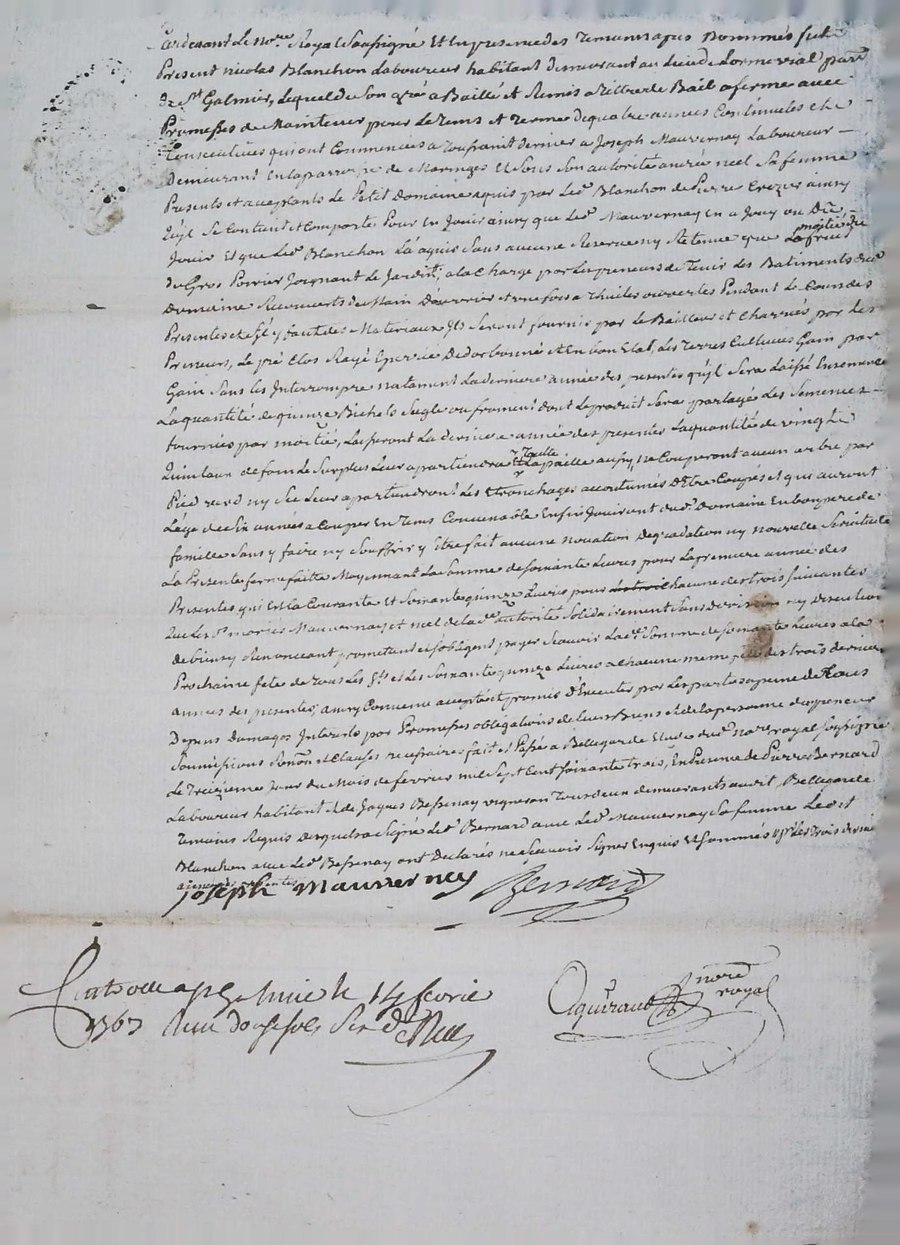 Pardevant Le no.re Royal Soussigné Et En presence des Temoins apres Nommés fut
Present nicolas Blanchon Laboureur habitant demeurant au Lieu de Lormevial parr.e
de St Galmier, Lequel de Son gré a Baillé et Remis a Tiltre de Bail a ferme avec
Promesses de Maintenir pour Le tems et Terme de quatre années Continuelles et
Consecutives qui ont Commencés a Toussaint dernier a Joseph Mauvernay Laboureur
demeurant En la parroisse de Maringes Et Sous Son autorité a neel Sa femme
Presents et acceptants Le Petit Domaine aquis par Led. Blanchon de Pierre ainsy
quil Se Contient et Comporte Pour En Jouir ainsy que Led. Mauvernay En a Jouy ou Dû
Jouir Et que Led. Blanchon L'a aquis Sans aucune Reserve ny Retenue que moitié du fruit
du Gros Poirier Joignant Le Jardin, a la Charge par Les preneurs de Tenir Les Batiments dud.
Domaine Recouverts de Main D'ouvrier et une fois a Thuiles ouvertes Pendant Le Cours des
Presentes et S'il y faut des Materiaux Ils Seront fournis par Le Bailleur et Charriés par Les
Preneurs, Le pré Clos Et En bon Etat, Les Terres Cultivées Gain par
Gain Sans Les Interrompre notament La derniere année des presentes qu'il Sera Laissé Ensemencé
La quantité de quinze Bichets Seigle ou froment dont Le produit Sera partagé Les Semences
fournies par moitié, Laisseront La derniere année des presentes La quantité de vingt
Quintaux de foin Le Surplus Leur apartiendra La paille aussy, ne Couperont aucun arbre par
Pied verd ny Sec Leur apartiendront Les Etronchages accoutumés D'Etre Coupés Et qui auront
L'age de Six années a Couper En Tems Convenable Enfin Jouiront dud. Domaine En bon pere de
famille Sans y faire ny Souffrir y Etre fait aucune novation Degradation ny nouvelle Servitude
La Presente ferme faitte Moyennant La Somme de Soixante Livres pour La premiere année des
Presentes qui Est La Courante Et Soixante quinze Livres pour Chacune des trois Suivantes
Que Les d. mariés Mauvernay et neel de lad. autorité Solidairement Sans division ny discution
de biens y Renonceant, promettent et s'obligent payer Scavoir Lad. Somme de Soixante Livres a la
Prochaine fete de Tous Les Sts et Les Soixante quinze Livres a chacune meme fete des trois dernieres
années des presentes, ainsy Convenu accepté et promis D'Executer par Les parties a peine de Tous
Depens Domages Interets par Promesses obligations de Leurs Biens Et de La personne du preneur
Soumissions Renon. et Clauses necessaires fait et Passé a Bellegarde Etude dud. Not.re royal Soussigné
Le Treizieme Jour du Mois de fevrier mil Sept Cent Soixante trois, En presence de Pierre Bernard
Laboureur habitant et de Jaques Bessenay vigneron Tous deux demeurants aud.t Bellegarde
Temoins Requis Desquels a Signé Led. Bernard avec Led. Mauvernay Sa femme Led.t
Blanchon avec Led. Bessenay ont Declarés ne Scavoir Signer Enquis Et Sommés
joseph mauverney Bernard
Controllé a St Galmier le 14 fevrie
1763 Recu douze sols
no.re
royal